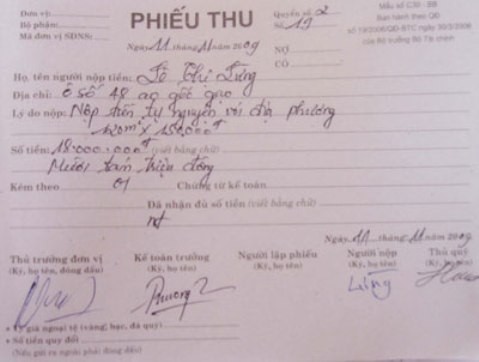 Đơn vị:
Bộ phận:
Mã đơn vị SDNS:
PHIẾU THU
Ngày 11 tháng 11 năm 2009
Quyển số: 2
Số: 19
Mẫu số C30 - BB
Ban hành theo QĐ
số 19/2006/QĐ-BTC ngày 30/3/2006
của Bộ trưởng Bộ Tài chính
NỢ
CÓ
Họ, tên người nộp tiền: Tô Thị Lừng
Địa chỉ: Ô số 48 ao gốc gạo
Lý do nộp: Nộp tiền tự nguyện với địa phương
120m² x 150.000đ
Số tiền: 18.000.000đ (viết bằng chữ)
Mười tám triệu đồng
Kèm theo 01 Chứng từ kế toán
Đã nhận đủ số tiền (viết bằng chữ)
nt
Ngày 11 tháng 11 năm 2009
Thủ trưởng đơn vị
(Ký, họ tên, đóng dấu)
Kế toán trưởng
(Ký, họ tên)
Người lập phiếu
(Ký, họ tên)
Người nộp
(Ký, họ tên)
Thủ quỹ
(Ký, họ tên)
Phương
Lừng
+ Tỷ giá ngoại tệ (vàng, bạc, đá quý)
+ Số tiền quy đổi
(Nếu gửi ra ngoài phải đóng dấu)